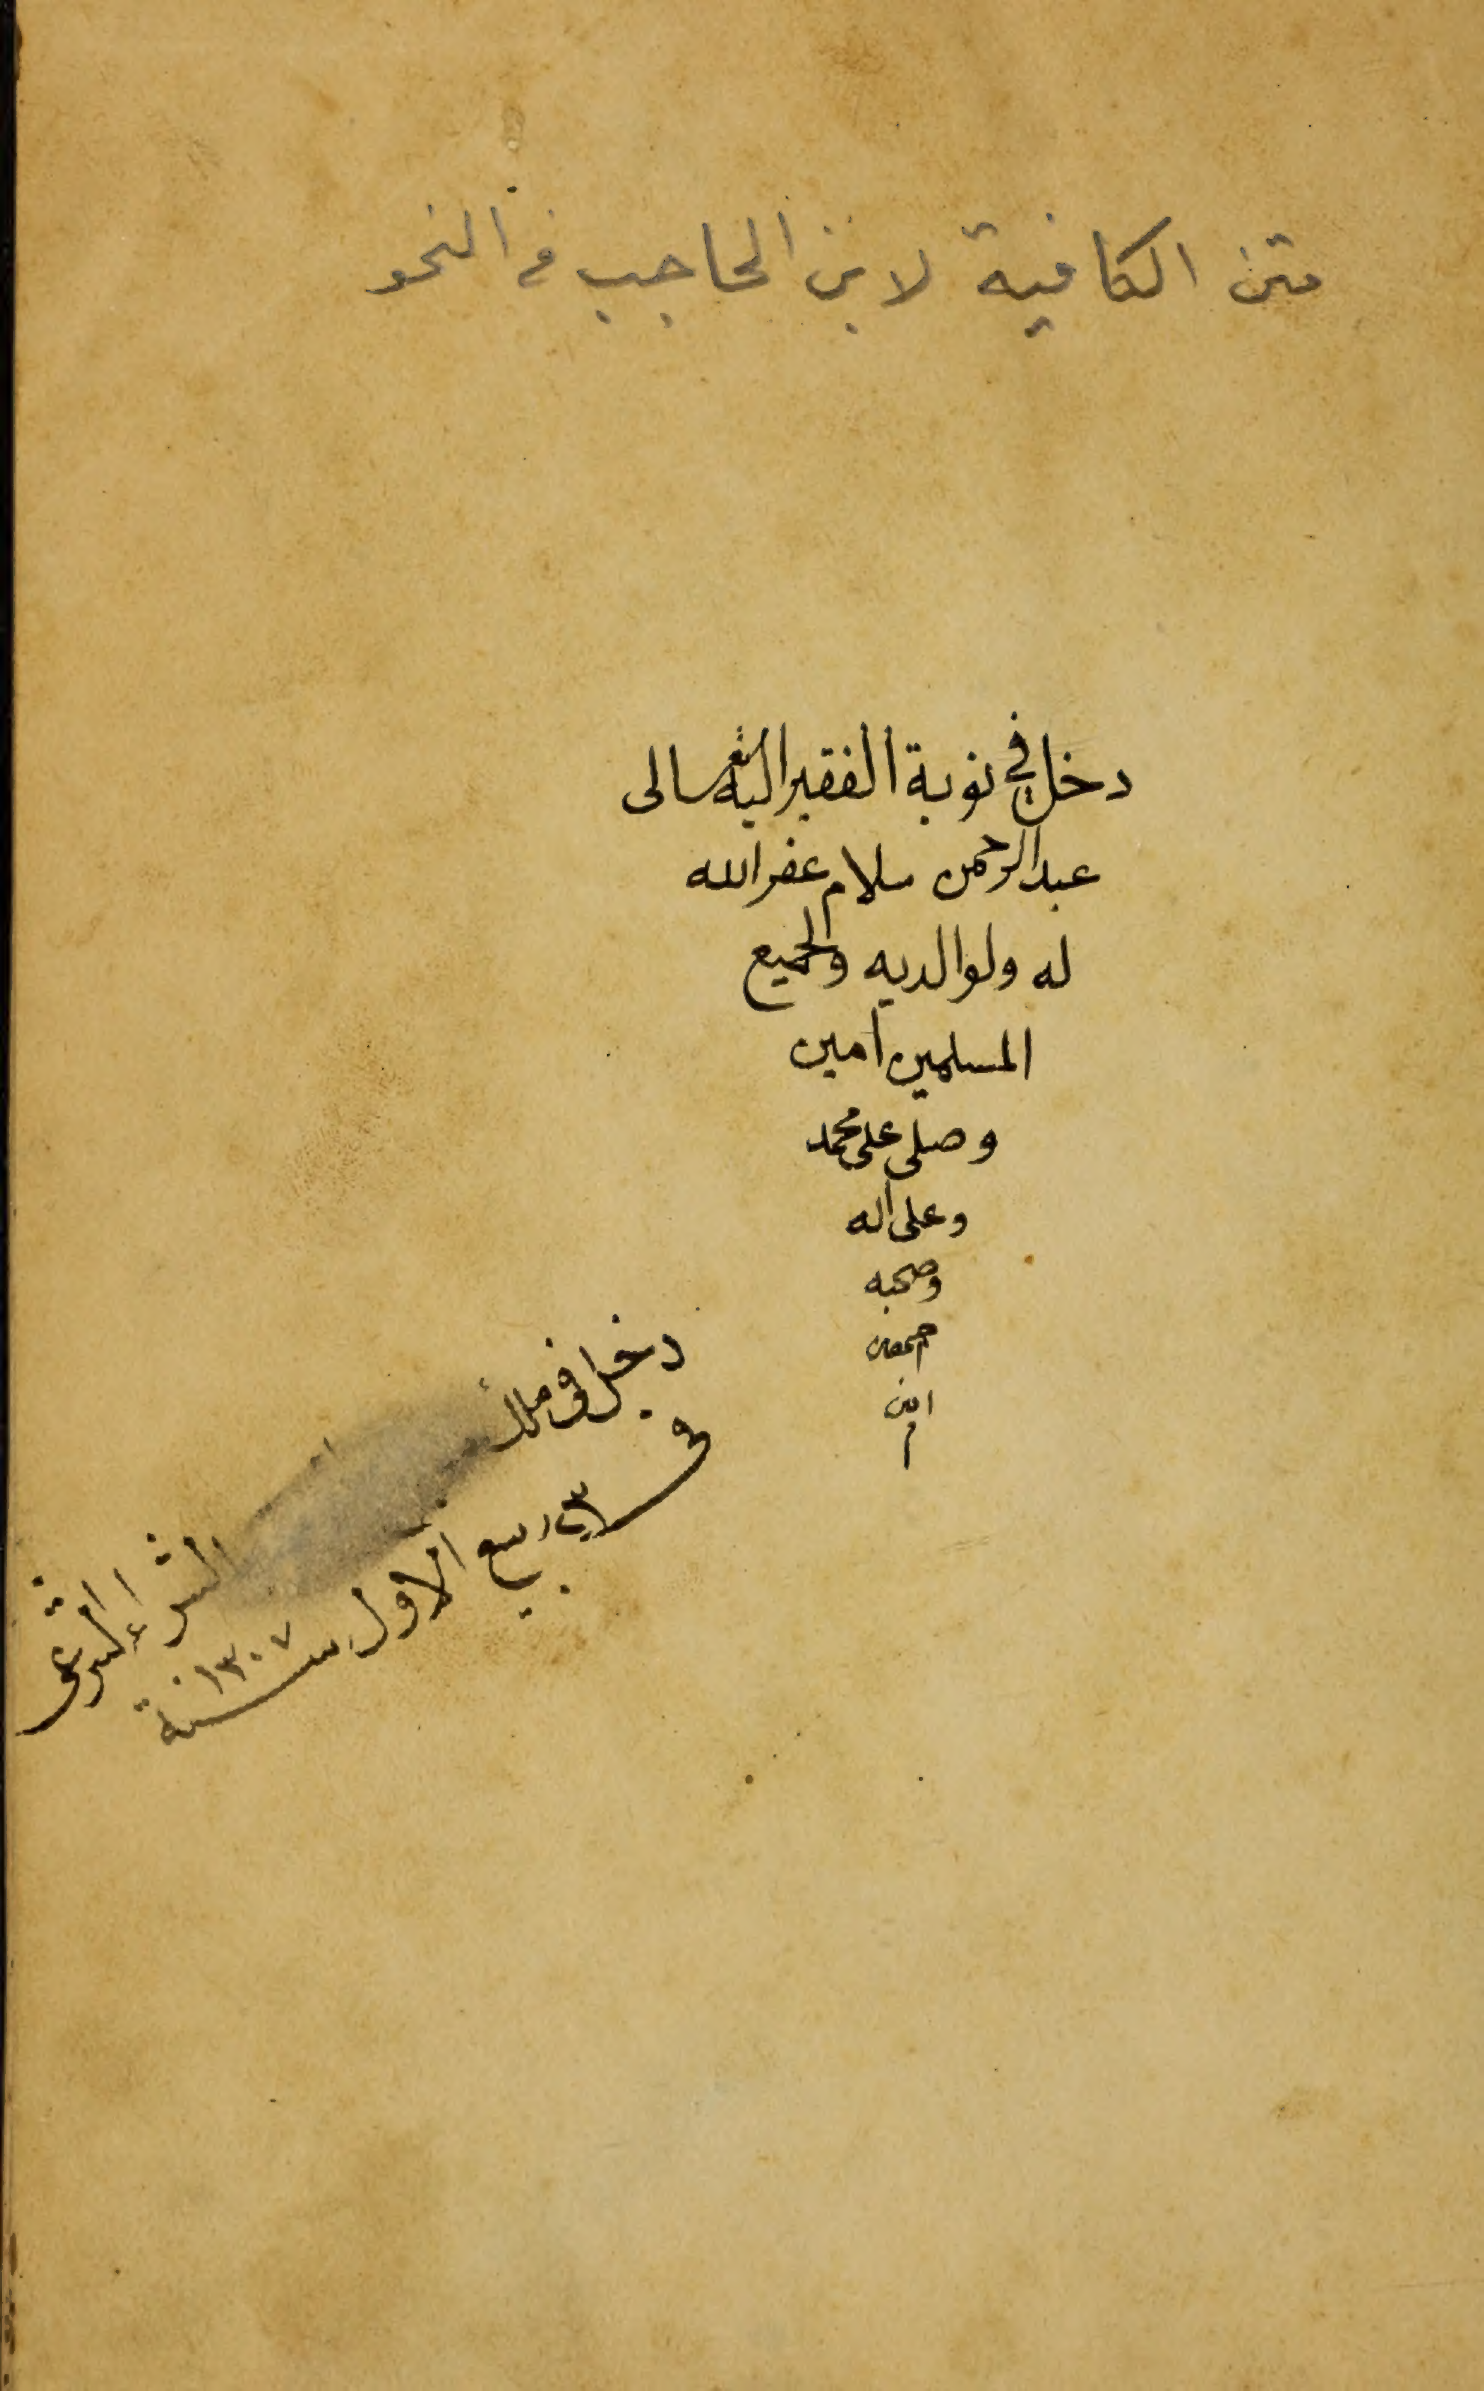 متن الكافية لابن الحاجب في النحو
دخل في نوبة الفقير اليه تعالى
عبد الرحمن سلام غفر الله
له ولوالديه والجميع
المسلمين امين
وصلى على محمد
وعلى اله
وصحبه
امين
م
دخل في ملك الشراء الشرعى
في ٣ ربيع الاول سنة ١٣٠٧